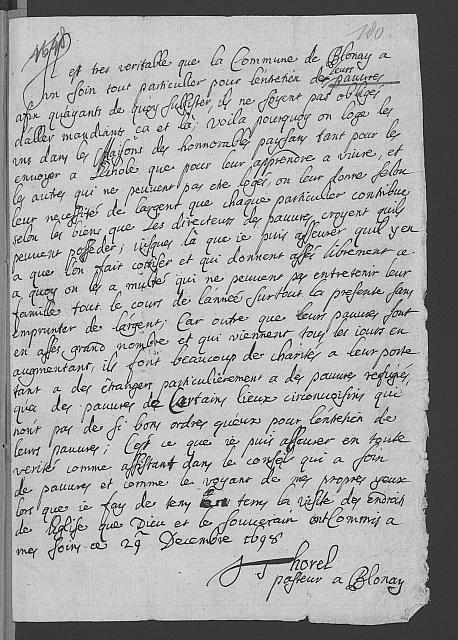 1698 180
Il est tres veritable que la Commune de Blonay a
un soin tout particulier pour lentretien de leurs pauvres
afin quayants de quoy subsister ils ne soyent pas obligés
daller mandians ça et là; voila pourquoy on loge les
uns dans les Maisons des honnorables paysans tant pour les
envoyer a Lechole que pour leur apprendre a vivre, et
les autres qui ne peuvent pas etre logés, on leur donne selon
leur necessité de largent que chaque particulier contribue
selon les biens que Les directeurs des pauvres croyent quils
peuvent posseder; jusques la que ie puis asseurer quil y en
a que lon fait cottiser et qui donnent assés librement a
a quoy on les a multés qui ne peuvent pas entretenir leur
famille tout le cours de lannée surtout la presente sans
emprunter de largent; Car outre que leurs pauvres sont
en assés grand nombre et qui viennent tous les iours en
augmentant, ils font beaucoup de charités a leur porte
tant a des étrangers particulierement a des pauvres refugiés,
qua des pauvres de Certains lieux circonvoisins qui
nont pas de si bons ordres queux pour lentretien de
leurs pauvres; C'est ce que ie puis asseurer en toute
verité comme assistant dans le conseil qui a soin
de pauvres et comme le voyant de mes propres yeux
lors que ie fay de tems En tems la visite des
de Leglise que Dieu et le Souverain ont Commis a
mes soins ce 29 Decembre 1698
Thorel
pasteur a Blonay